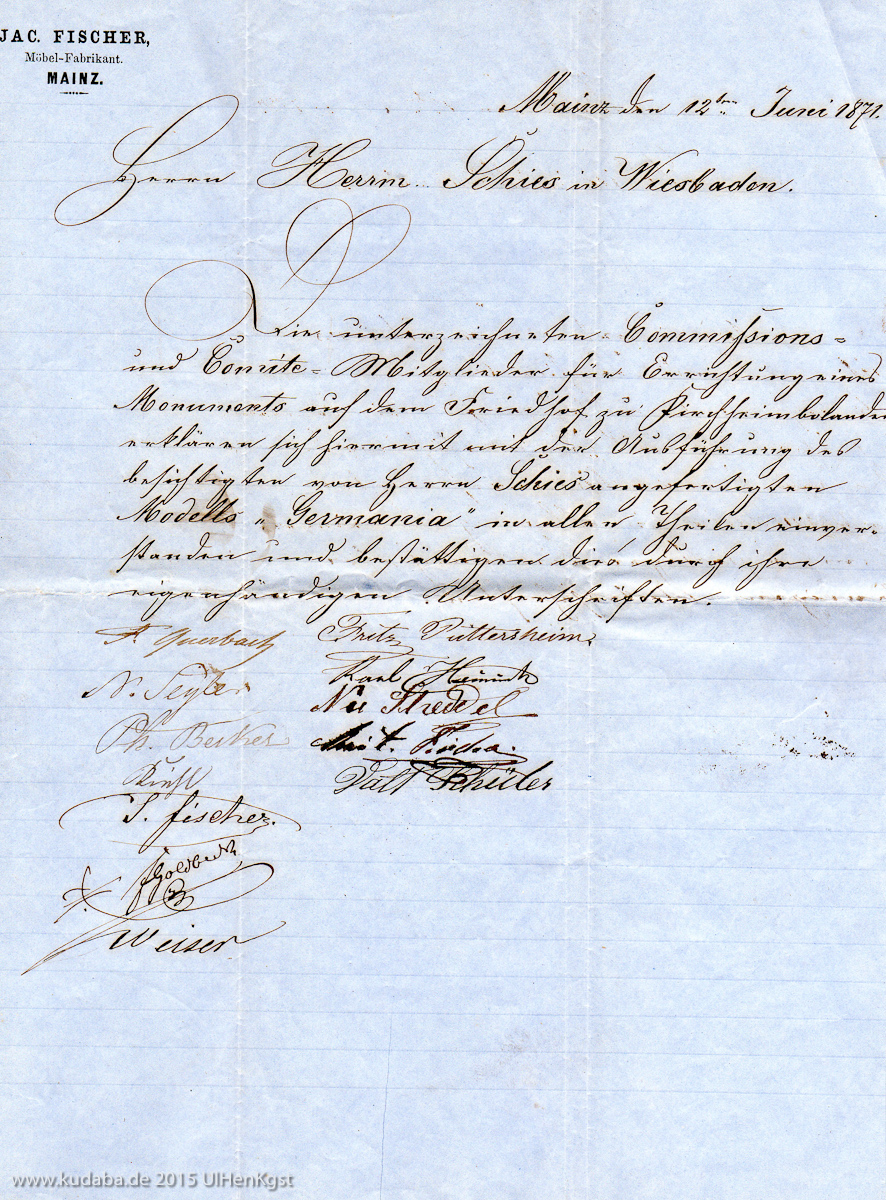 JAC. FISCHER,
Möbel-Fabrikant.
MAINZ.
Mainz den 12ten Juni 1871.
Herrn Herrm. Schies in Wiesbaden.
Die unterzeichneten Commissions=
und Comite= Mitglieder für Errichtung eines
Monuments auf dem Friedhof zu Kirchheimbolanden
erklären sich hiermit mit der Ausführung des
besichtigten von Herrn Schies angefertigten
Modells „Germania" in allen Theilen einver-
standen und bestättigen dies durch ihre
eigenhändigen Unterschriften.
Querbach Fritz
N. Seyler Karl
Ph. Becker
J. Fischer.
Goldbeck
Weiser
www.kudaba.de 2015 UlHenKgst